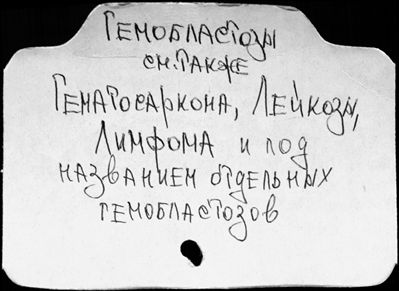 ГЕМОБЛАСТОЗЫ
см. ТАКЖЕ
ГЕМАТОСАРКОМА, ЛЕЙКОЗЫ,
ЛИМФОМА и под
названием отдельных
гемобластозов